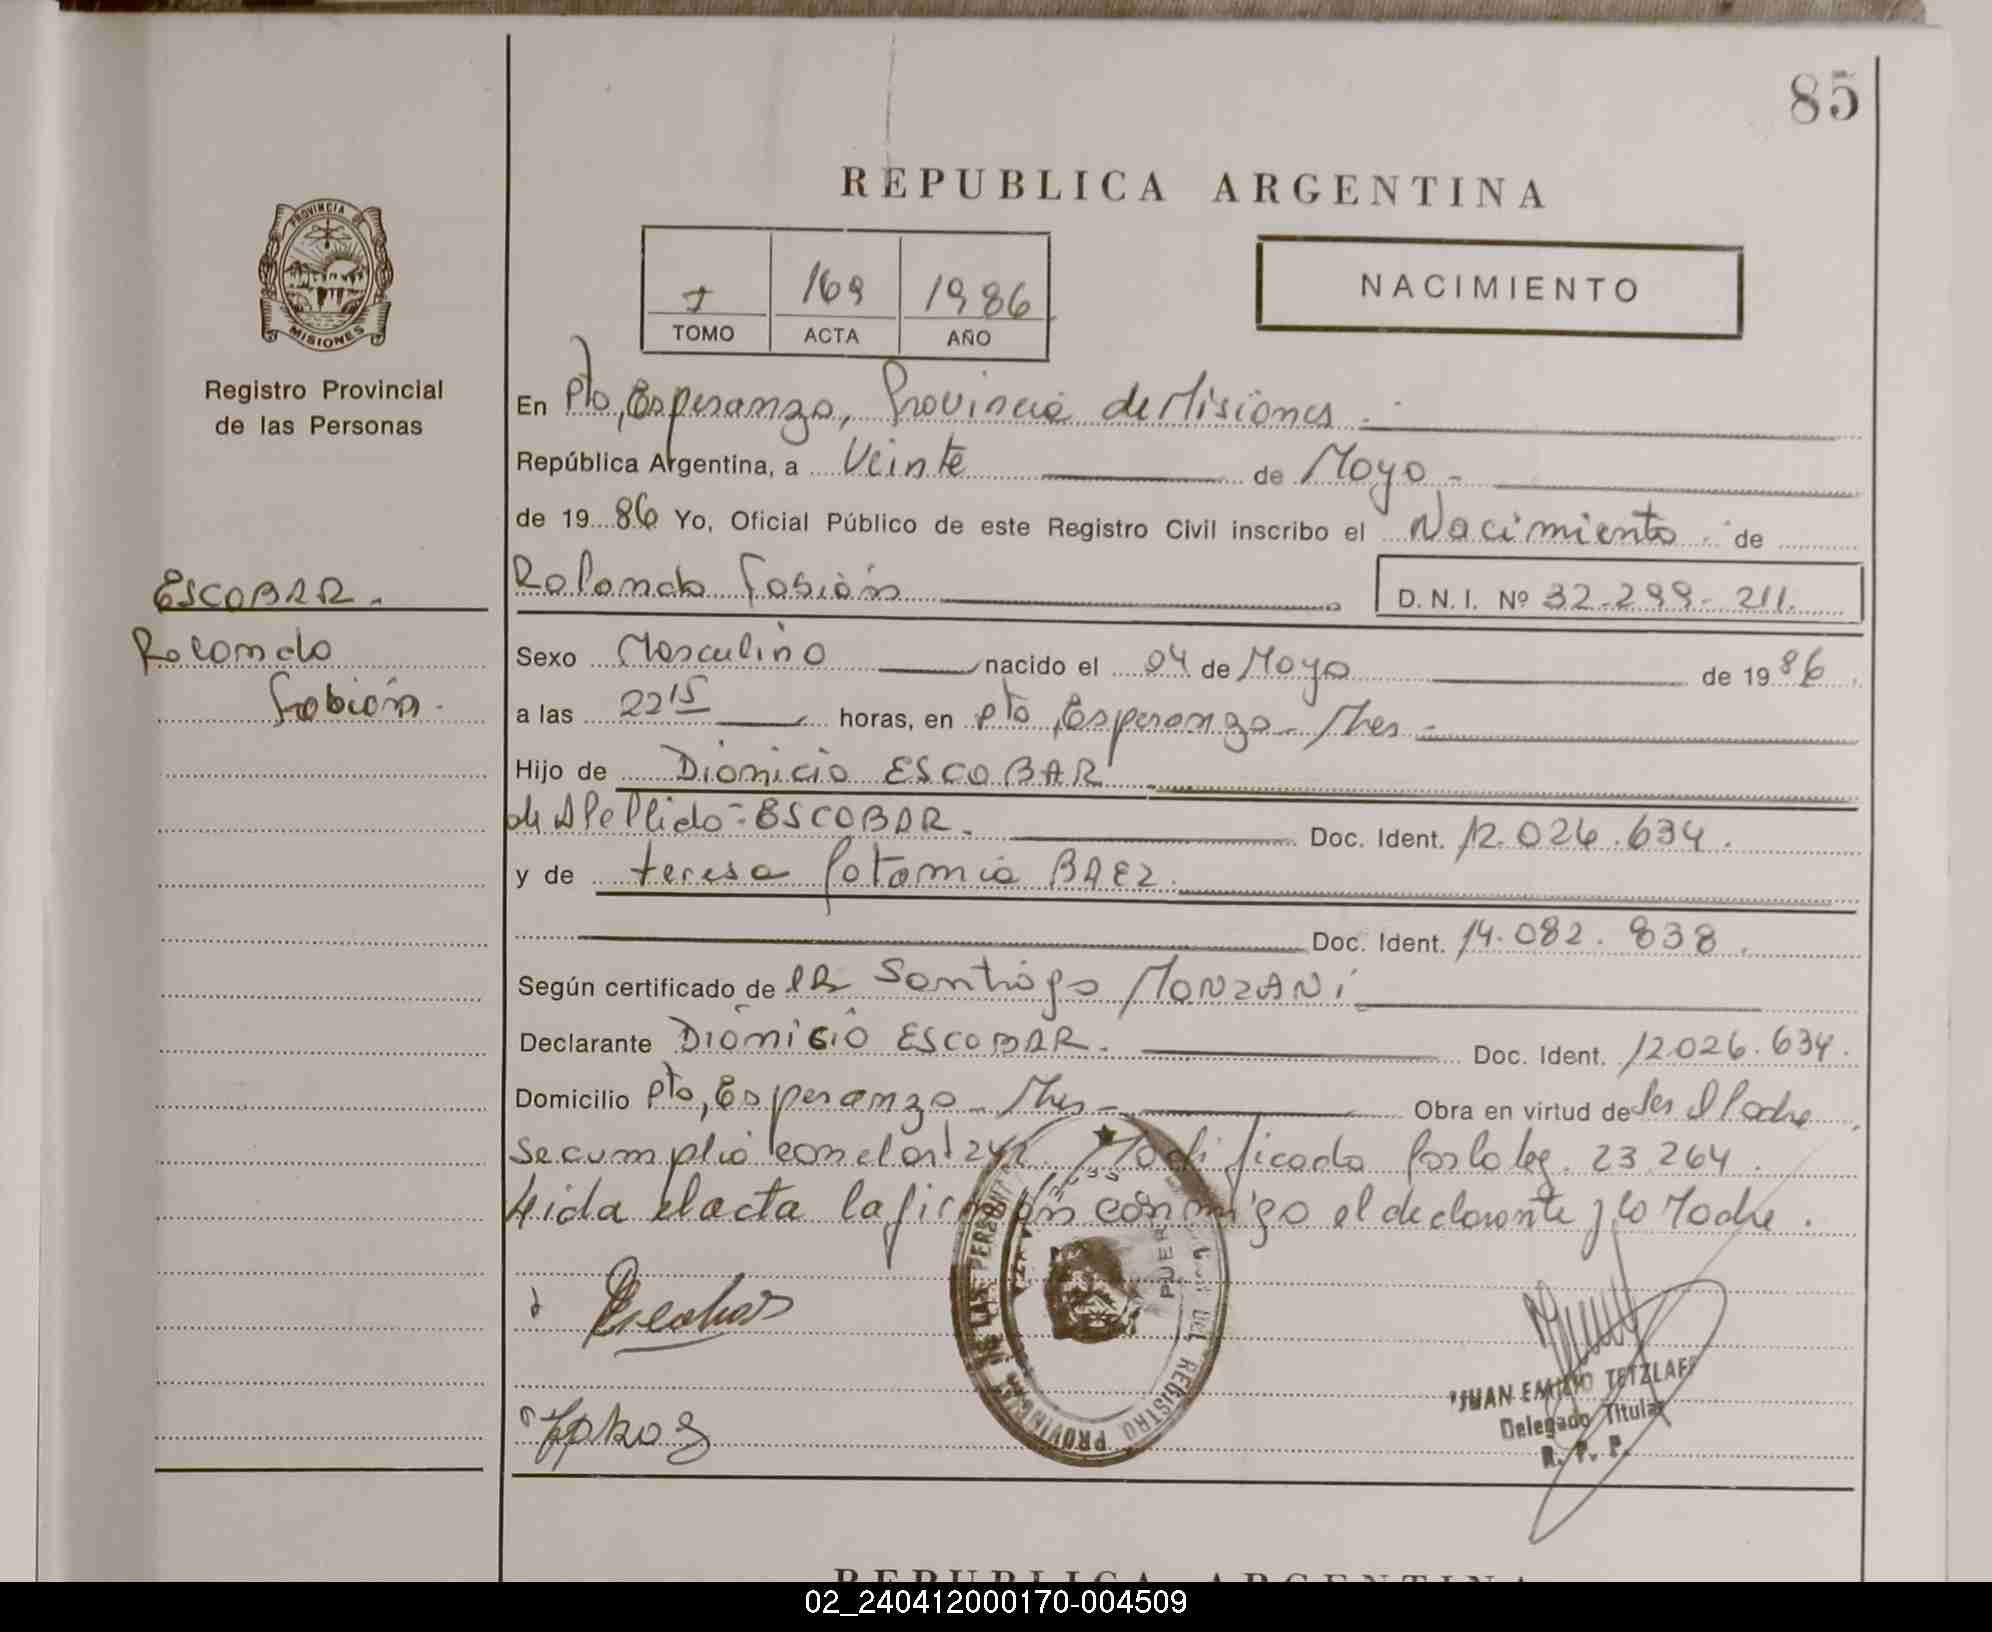 85
REPUBLICA ARGENTINA
PROVINCIA DE
MISIONES
Registro Provincial
de las Personas
I 169 1986
TOMO ACTA AÑO
NACIMIENTO
En Pto, Esperanza, Provincia de Misiones.
República Argentina, a Veinte de Mayo -
de 19 86 Yo, Oficial Público de este Registro Civil inscribo el Nacimiento de
ESCOBAR.
Rolando
Fabián.
Rolando Fabián D. N. I. Nº 32-299-211.
Sexo Masculino nacido el 04 de Mayo de 19 86
a las 22 15 horas, en Pto, Esperanza - Mnes -
Hijo de Dionicio ESCOBAR
de Apellido = ESCOBAR. Doc. Ident. 12.026.634.
y de teresa Potamia BAEZ.
Doc. Ident. 14.082.838.
Según certificado de DR Santiago MONZANi
Declarante Dionicio ESCOBAR. Doc. Ident. 12.026.634.
Domicilio Pto, Esperanza - Mnes - Obra en virtud de ser el Padre
se cumplió con el art 242 Modificado por la ley. 23.264.
Leida el acta la firman conmigo el declarante y la Madre.
DEL REGISTRO PROVINCIAL DE LAS PERSONAS
PUER
JUAN EMILIO TETZLAFF
Delegado Titular
R. P. P.
REPUBLICA ARGENTINA
02_240412000170-004509